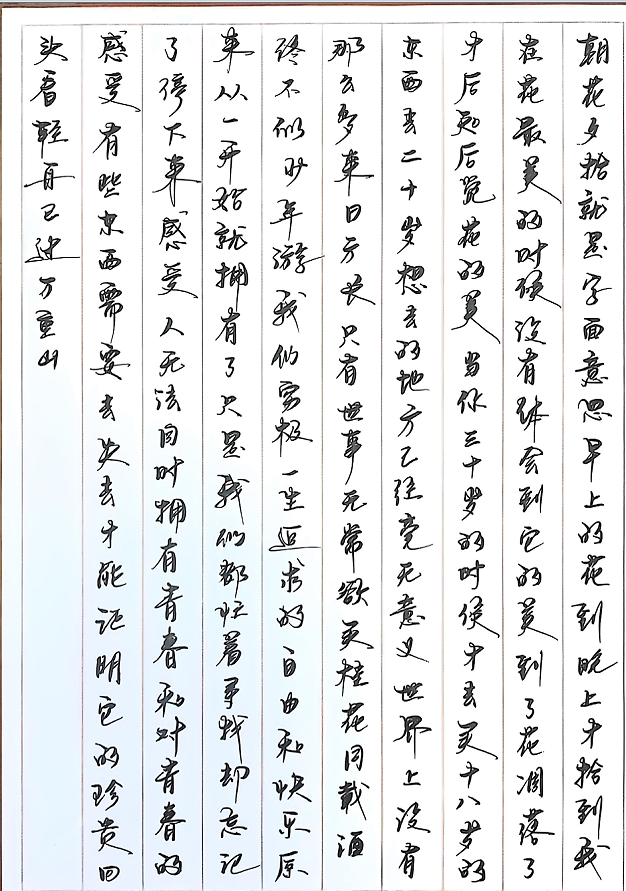 朝花夕拾就是字面意思早上的花到晚上才拾到我
在花最美的时候没有体会到它的美到了花凋落了
才后知后觉花的美当你三十岁的时候才去买十八岁的
东西去二十岁想去的地方已经毫无意义世界上没有
那么多来日方长只有世事无常欲买桂花同载酒
终不似少年游我们穷极一生追求的自由和快乐原
来从一开始就拥有了只是我们都忙着寻找却忘记
了停下来感受人无法同时拥有青春和对青春的
感受有些东西需要去失去才能证明它的珍贵回
头看轻舟已过万重山